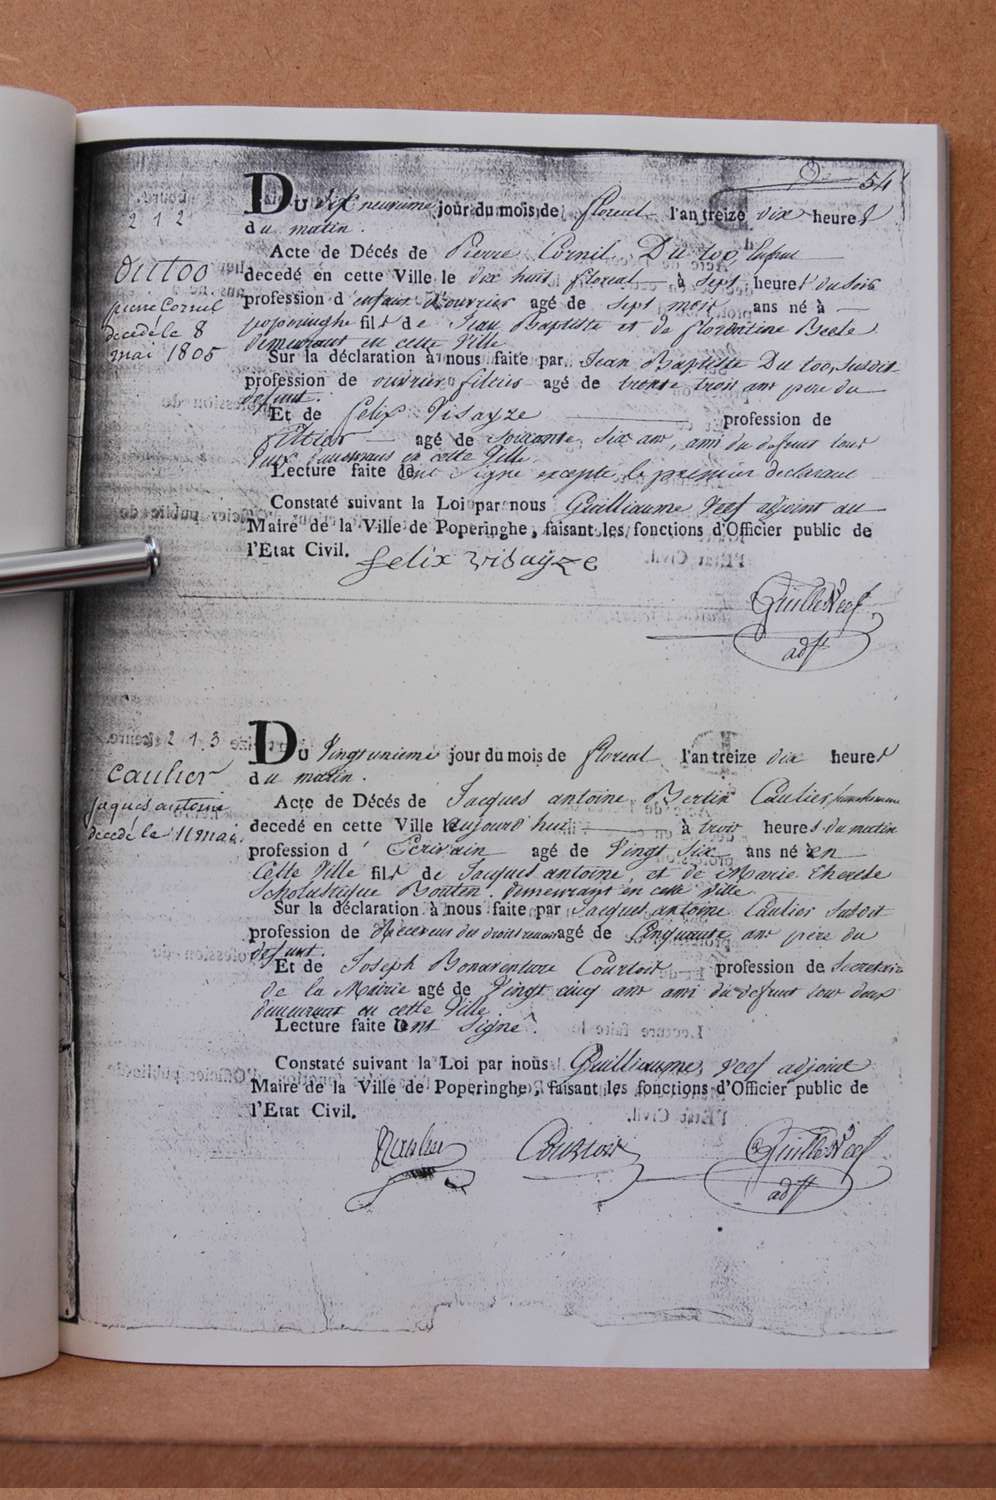 54
212
Dutoo
pierre Cornil
decedé le 8
mai 1805
Du dix neuvieme jour du mois de floreal l'an treize dix heures
du matin.
Acte de Décés de Pierre Cornil Du too, Enfant
decedé en cette Ville le dix huit floreal à sept heures du soir
profession d'enfant d'ouvrier agé de sept mois ans né à
poperinghe fils de Jean Baptiste et de florentine Beele
demeurant en cette Ville
Sur la déclaration à nous faite par Jean Baptiste Du too, susdit
profession de ouvrier agé de trente trois ans pere du
defunt.
Et de Felix Visayze profession de
agé de soixante six ans, ami du defunt tous
deux demeurans en cette Ville.
Lecture faite ont signé excepté le premier declarant
Constaté suivant la Loi par nous Guilliaume Neef adjoint au
Maire de la Ville de Poperinghe, faisant les fonctions d'Officier public de
l'Etat Civil.
felix visayze
Guille Neef
adjt
213
Caulier
jaques antoine
decedé le 11 mai
Du Vingt unieme jour du mois de floreal l'an treize dix heures
du matin.
Acte de Décés de Jacques antoine Bertin Caulier
decedé en cette Ville le aujourd'hui à trois heures du matin
profession d'Ecrivain agé de Vingt Six ans né en
Cette Ville fils de Jacques antoine, et de Marie Therese
Scholastique Bouten. demeurant en cette Ville
Sur la déclaration à nous faite par Jacques antoine Caulier susdit
profession de Receveur des droits agé de Cinquante ans pere du
defunt.
Et de Joseph Bonaventure Courtois profession de Secretaire
de la Mairie agé de Vingt cinq ans ami du defunt tous deux
demeurant en cette Ville
Lecture faite ont signé.
Constaté suivant la Loi par nous Guilliaume Neef adjoint
Maire de la Ville de Poperinghe, faisant les fonctions d'Officier public de
l'Etat Civil.
Caulier Courtois Guille Neef
adjt